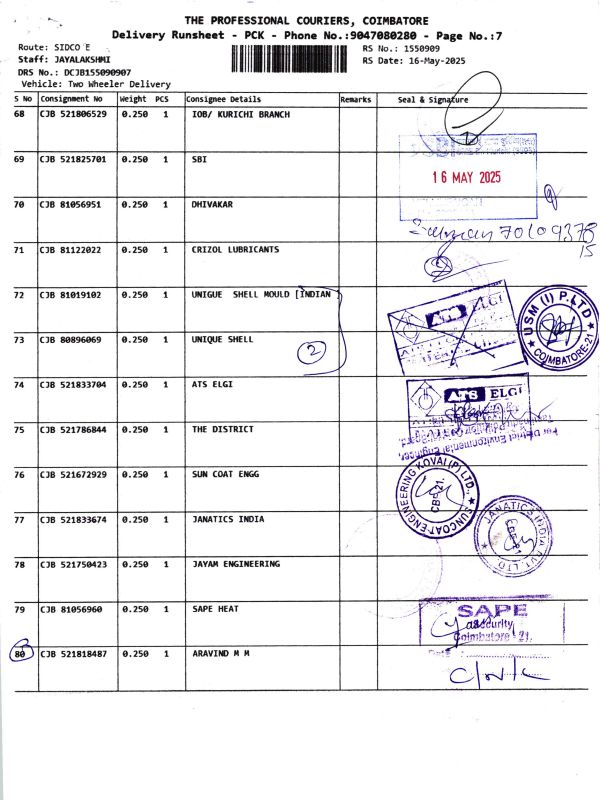 THE PROFESSIONAL COURIERS, COIMBATORE
Delivery Runsheet - PCK - Phone No.:9047080280 - Page No.:7
Route: SIDCO E
RS No.: 1550909
Staff: JAYALAKSHMI
RS Date: 16-May-2025
DRS No.: DCJB155090907
Vehicle: Two Wheeler Delivery
S No Consignment No Weight PCS Consignee Details Remarks Seal & Signature
68 CJB 521806529 0.250 1 IOB/ KURICHI BRANCH
69 CJB 521825701 0.250 1 SBI
16 MAY 2025
70 CJB 81056951 0.250 1 DHIVAKAR
71 CJB 81122022 0.250 1 CRIZOL LUBRICANTS
72 CJB 81019102 0.250 1 UNIGUE SHELL MOULD [INDIAN
ATS ELGI
USM (I) P.LTD
COIMBATORE-21
73 CJB 80896069 0.250 1 UNIQUE SHELL
2
74 CJB 521833704 0.250 1 ATS ELGI
ATS ELGI
75 CJB 521786844 0.250 1 THE DISTRICT
For District Environmental Engineer,
76 CJB 521672929 0.250 1 SUN COAT ENGG
SUNCOAT ENGINEERING KOVAI (P) LTD.,
CBE-21.
77 CJB 521833674 0.250 1 JANATICS INDIA
JANATICS INDIA PVT. LTD
CBE-21
78 CJB 521750423 0.250 1 JAYAM ENGINEERING
79 CJB 81056960 0.250 1 SAPE HEAT
SAPE
Security
Coimbatore - 21.
80 CJB 521818487 0.250 1 ARAVIND M M
Date :